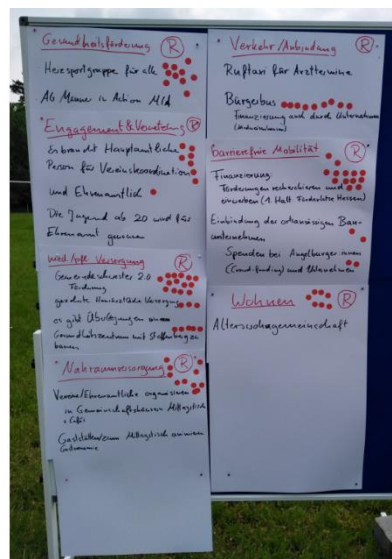 Gesundheitsförderung R
Herzsportgruppe für alle
AG Männer in Action
Engagement & Vereine R
Es braucht Hauptamtliche
Person für Vereinskoordination
und Ehrenamtlich
Die Jugend ab 20 wird für
Ehrenamt gewonnen
Versorgung R
Gemeindeschwester 2.0
Förderung
Hausärztliche Versorgung
es gibt Überlegungen
Gesundheitszentrum mit zu
bauen
Nahraumversorgung R
Vereine/Ehrenamtliche organisieren
in Gemeinschaftshäusern Mittagstisch
+ Cafés
Gaststätten Mittagstisch
Gastronomie
Verkehr/Anbindung R
Ruftaxi für Arzttermine
Bürgerbus
Finanzierung auch durch Unternehmen
Barrierefreie Mobilität R
Finanzierung
Förderungen recherchieren und
einwerben (1. Halt Förderlotse Hessen)
Einbindung der ortsansässigen Bau-
unternehmen
Spenden bei Angelburger:innen
(Crowdfunding) und
Wohnen R
Alterswohngemeinschaft